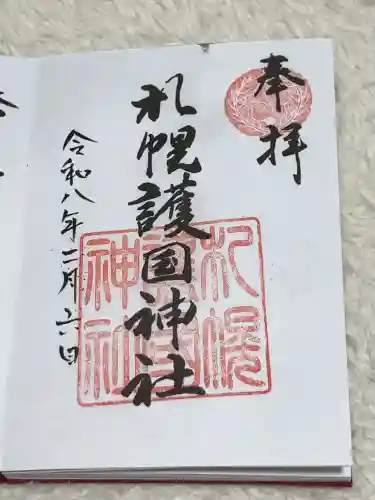 奉拝
札幌護国神社
令和八年二月六日
札幌護国神社